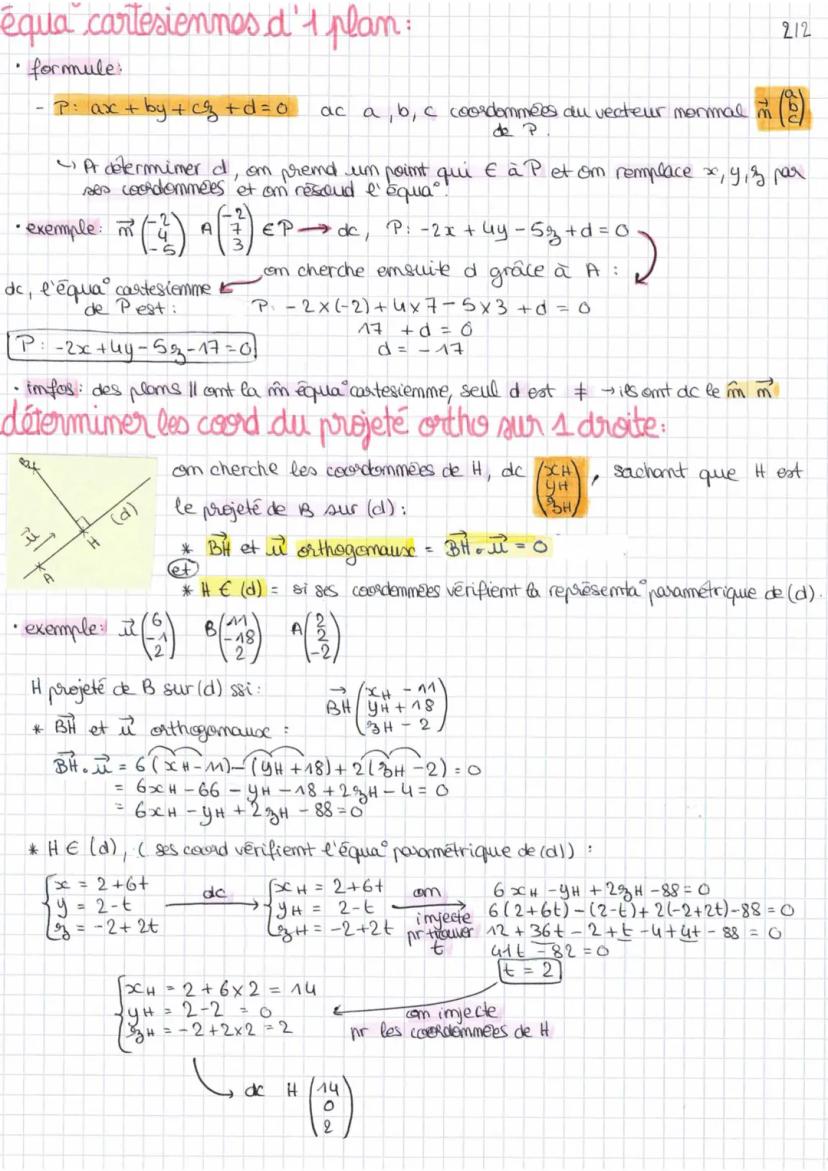 équa° cartésiennes d'1 plan :
2/2
• formule :
- P : ax + by + cz + d = 0 ac a, b, c coordonnées du vecteur normal n⃗ (a b c)
de P.
↳ A déterminer d, on prend un point qui ∈ à P et on remplace x, y, z par
ses coordonnées et on résoud l'équa°.
• exemple : n⃗ (-2 4 -5) A (-2 7 3) ∈ P → dc, P : -2x + 4y - 5z + d = 0
on cherche ensuite d grâce à A :
dc, l'équa° cartesienne
de P est :
P : -2x(-2) + 4x7 - 5x3 + d = 0
17 + d = 0
d = -17
P : -2x + 4y - 5z - 17 = 0
• infos : des plans // ont la m̂ équa° cartesienne, seul d est ≠ → ils ont dc le m̂ n⃗
déterminer les coord du projeté ortho sur 1 droite :
B
u⃗
A
H
(d)
on cherche les coordonnées de H, dc (xH yH zH), sachant que H est
le projeté de B sur (d) :
* BH⃗ et u⃗ orthogonaux = BH⃗ . u⃗ = 0
et
* H ∈ (d) = si ses coordonnées vérifient la représenta° paramétrique de (d).
• exemple : u⃗ (6 -1 2) B (11 -18 2) A (2 2 -2)
H projeté de B sur (d) ssi :
BH⃗ (xH - 11 yH + 18 zH - 2)
* BH⃗ et u⃗ orthogonaux :
BH⃗ . u⃗ = 6(xH - 11) - (yH + 18) + 2(zH - 2) = 0
= 6xH - 66 - yH - 18 + 2zH - 4 = 0
= 6xH - yH + 2zH - 88 = 0
* H ∈ (d), (ses coord vérifient l'équa° paramétrique de (d)) :
{x = 2 + 6t
y = 2 - t
z = -2 + 2t
dc
{xH = 2 + 6t
yH = 2 - t
zH = -2 + 2t
on
injecte
pr trouver
t
6xH - yH + 2zH - 88 = 0
6(2 + 6t) - (2 - t) + 2(-2 + 2t) - 88 = 0
12 + 36t - 2 + t - 4 + 4t - 88 = 0
41t - 82 = 0
t = 2
{xH = 2 + 6 x 2 = 14
yH = 2 - 2 = 0
zH = -2 + 2x2 = 2
on injecte
pr les coordonnées de H
dc H (14 0 2)